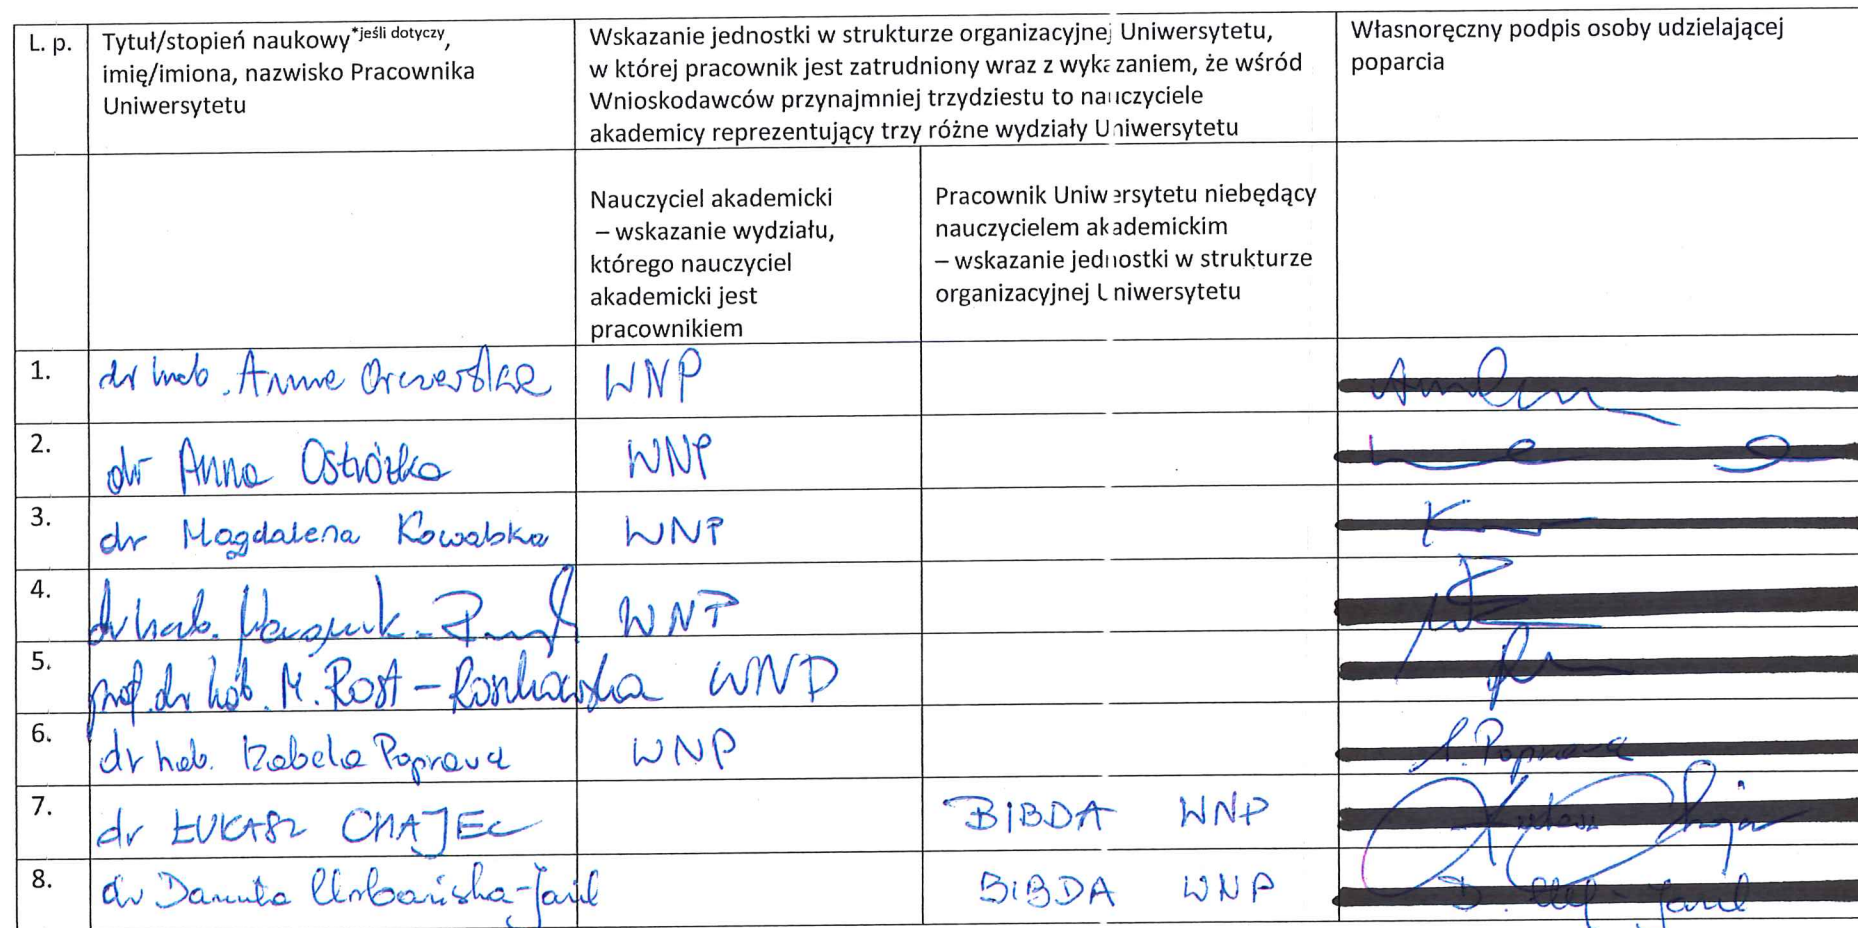 L. p.
Tytuł/stopień naukowy*jeśli dotyczy,
imię/imiona, nazwisko Pracownika
Uniwersytetu
Wskazanie jednostki w strukturze organizacyjnej Uniwersytetu,
w której pracownik jest zatrudniony wraz z wykazaniem, że wśród
Wnioskodawców przynajmniej trzydziestu to nauczyciele
akademicy reprezentujący trzy różne wydziały Uniwersytetu
Własnoręczny podpis osoby udzielającej
poparcia
Nauczyciel akademicki
– wskazanie wydziału,
którego nauczyciel
akademicki jest
pracownikiem
Pracownik Uniwersytetu niebędący
nauczycielem akademickim
– wskazanie jednostki w strukturze
organizacyjnej Uniwersytetu
1. dr hab. Anna WNP
2. dr Anna Ostrózka WNP
3. dr Magdalena Kowalska WNP
4. dr hab. WNP
5. prof. dr hab. M. Rost-Roszkowska WNP
6. dr hab. Izabela Poprawa WNP
7. dr ŁUKASZ CHAJEC BIBDA WNP
8. dr Danuta Urbańska-Jasik BIBDA WNP